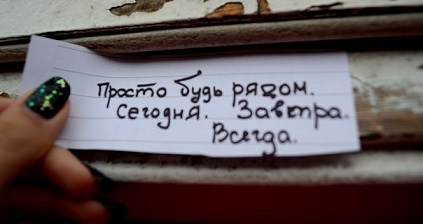 Просто будь рядом.
Сегодня. Завтра.
Всегда.